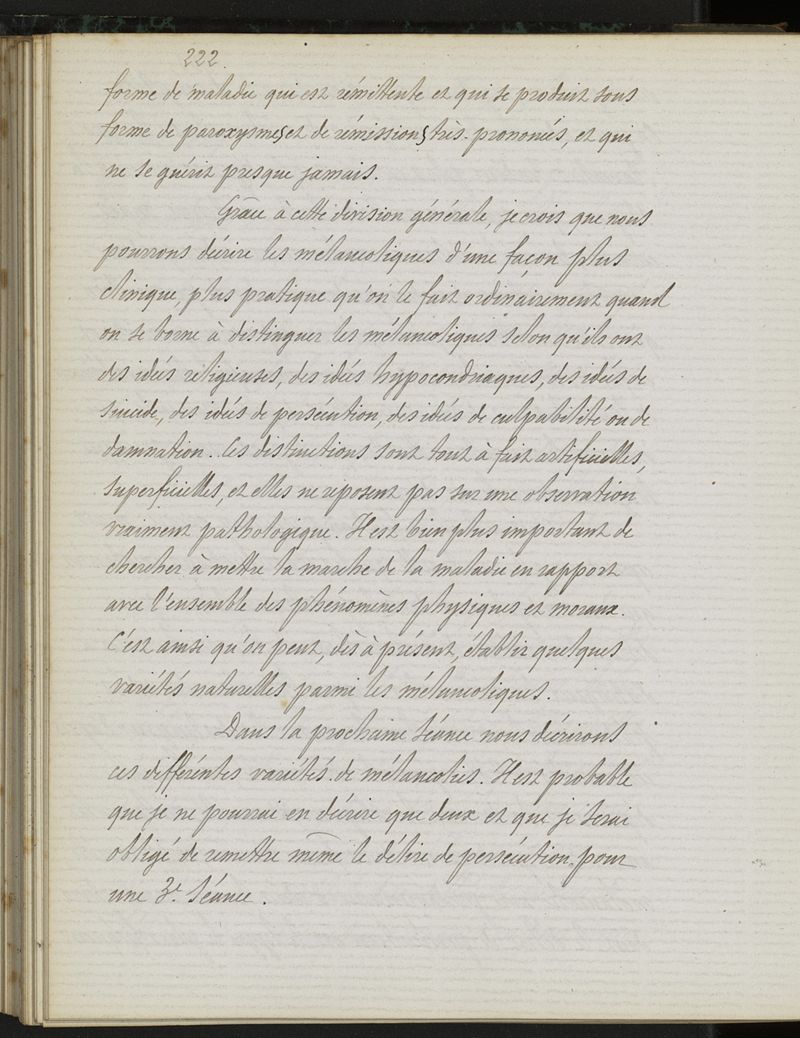 222.
forme de maladie qui est rémittente et qui se produit sous
forme de paroxysmes et de rémissions très-prononcés, et qui
ne se guérit presque jamais.
Grâce à cette division générale, je crois que nous
pourrons décrire les mélancoliques d'une façon plus
clinique, plus pratique qu'on le fait ordinairement quand
on se borne à distinguer les mélancoliques selon qu'ils ont
des idées religieuses, des idées hypocondriaques, des idées de
suicide, des idées de persécution, des idées de culpabilité ou de
damnation. Ces distinctions sont tout à fait artificielles,
superficielles, et elles ne reposent pas sur une observation
vraiment pathologique. Il est bien plus important de
chercher à mettre la marche de la maladie en rapport
avec l'ensemble des phénomènes physiques et moraux.
C'est ainsi qu'on peut, dès à présent, établir quelques
variétés naturelles parmi les mélancoliques.
Dans la prochaine séance nous décrirons
ces différentes variétés de mélancolies. Il est probable
que je ne pourrai en décrire que deux et que je serai
obligé de remettre même le délire de persécution pour
une 3e séance.